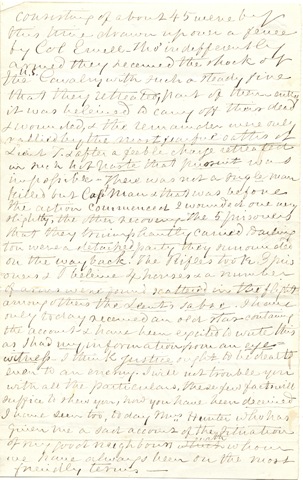 Consisting of about 45 were by
this time drawn up over a fence
by Col Ewell. tho' indifferently
armed they received the shock of
the U.S. Cavalry with such a steady fire
that they retreated, part of them
it was believed to carry off their dead
& wounded, & the remainder were only
rallied by the most oaths of
Lieut T. & after a feeble charge retreated
in such hot haste that pursuit was
impossible - There was not a single man
killed but Cap Marr & that was before
the action commenced & wounded one very
slightly, the other recovering the 5 prisoners
that they triumphantly carried
ton were a detached party they surrounded
on the way back. The Rifles took 3 pris
oners & horses & a number
of arms were found scattered in the flight
amongst others the Lieuts sabre. I have
only today received an old Star containing
the account & have been excited to write this
as I had my information from an eye
witness. I think justice ought to be dealt
even to an enemy. I will not trouble you
with all the particulars, these few facts will
suffice to shew you, how you have been deceived
I have seen too, today Mrs Hunter who has
given me a sad account of the situation
of my good neighbours with whom
we have always been on the most
friendly terms -